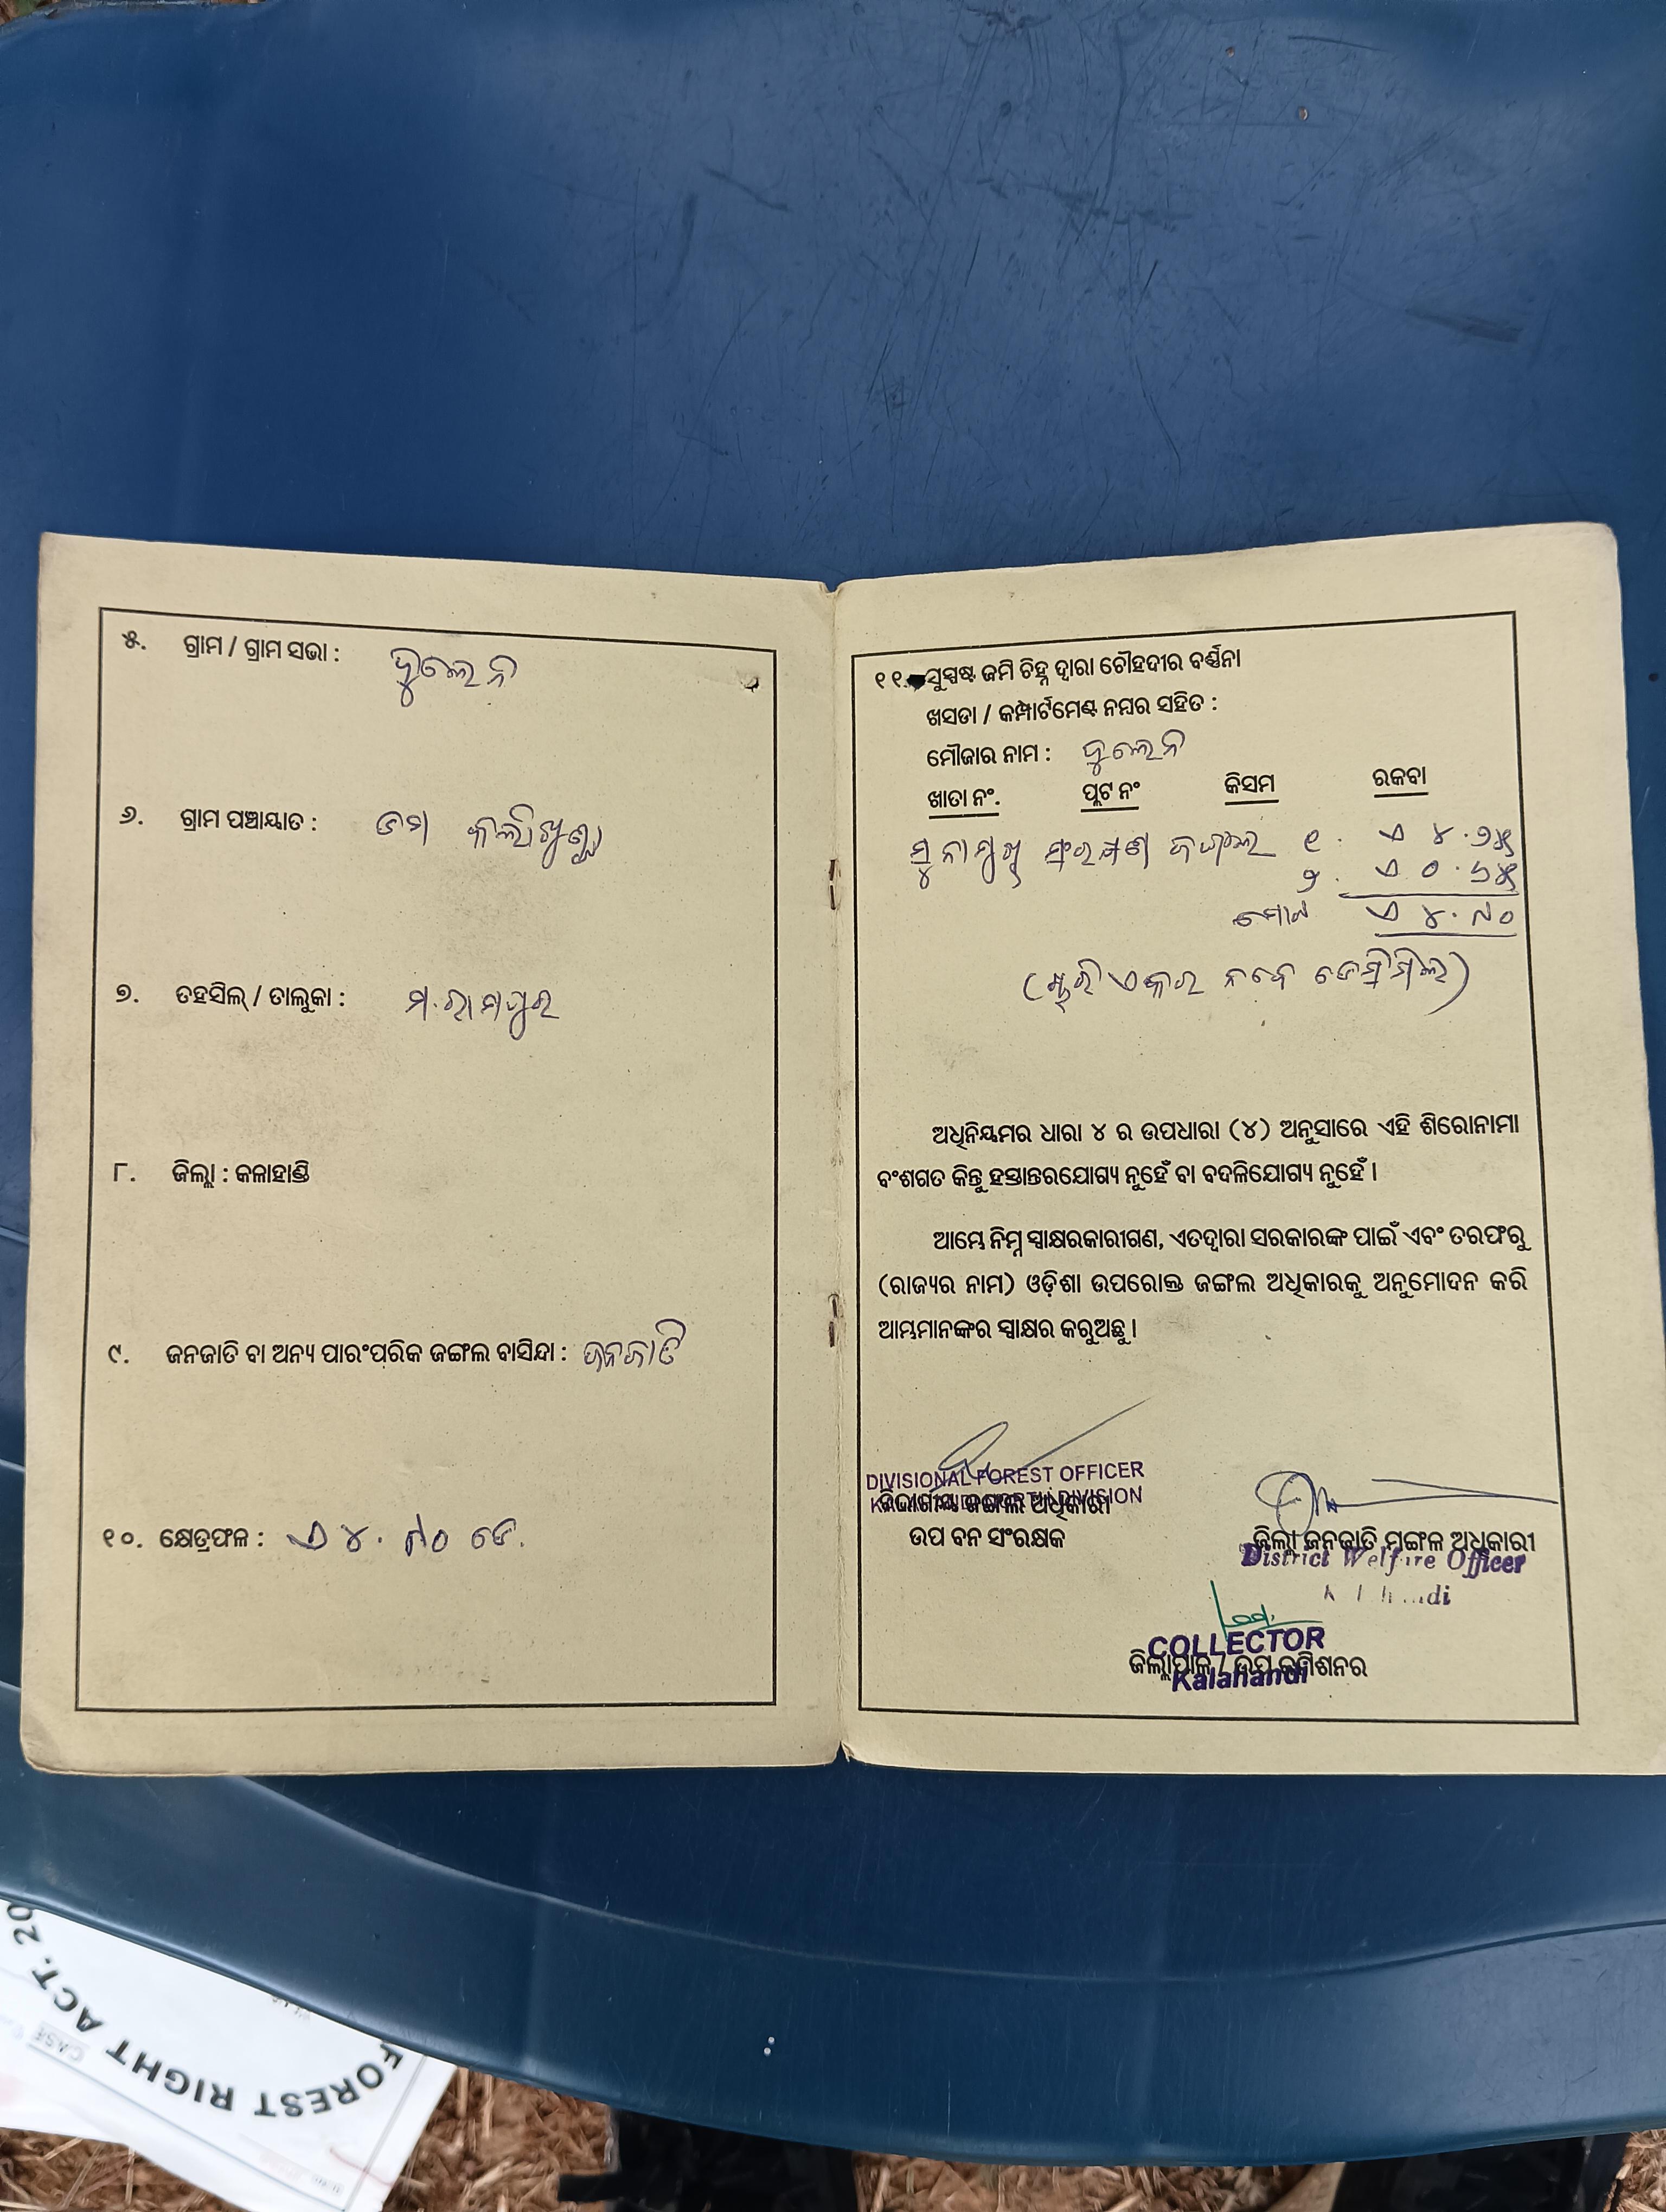 ୫. ଗ୍ରାମ / ଗ୍ରାମ ସଭା : ଦୁଲେନ
୬. ଗ୍ରାମ ପଞ୍ଚାୟାତ : ଡମ କର୍ଲାଖୁଣ୍ଟା
୭. ତହସିଲ୍ / ତାଲୁକା : ମ. ରାମପୁର
୮. ଜିଲ୍ଲା : କଳାହାଣ୍ଡି
୯. ଜନଜାତି ବା ଅନ୍ୟ ପାରଂପରିକ ଜଙ୍ଗଲ ବାସିନ୍ଦା : ଜନଜାତି
୧୦. କ୍ଷେତ୍ରଫଳ : ଏ ୪.୯୦ ଡେ.
୧୧. ସୁସ୍ପଷ୍ଟ ଜମି ଚିହ୍ନ ଦ୍ୱାରା ଚୌହଦୀର ବର୍ଣ୍ଣନା
ଖସଡା / କମ୍ପାର୍ଟମେଣ୍ଟ ନମ୍ବର ସହିତ :
ମୌଜାର ନାମ : ଦୁଲେନ
ଖାତା ନଂ. ପ୍ଲଟ ନଂ କିସମ ରକବା
ସଂରକ୍ଷଣ ଜଙ୍ଗଲ ୧. ଏ ୪.୨୫
୨. ଏ ୦.୬୫
ମୋଟ ଏ ୪.୯୦
(ଚାରି ଏକର ନବେ ଡେସିମିଲ)
ଅଧିନିୟମର ଧାରା ୪ ର ଉପଧାରା (୪) ଅନୁସାରେ ଏହି ଶିରୋନାମା
ବଂଶଗତ କିନ୍ତୁ ହସ୍ତାନ୍ତରଯୋଗ୍ୟ ନୁହେଁ ବା ବଦଳିଯୋଗ୍ୟ ନୁହେଁ ।
ଆମ୍ଭେ ନିମ୍ନ ସ୍ୱାକ୍ଷରକାରୀଗଣ, ଏତଦ୍ଦ୍ୱାରା ସରକାରଙ୍କ ପାଇଁ ଏବଂ ତରଫରୁ
(ରାଜ୍ୟର ନାମ) ଓଡ଼ିଶା ଉପରୋକ୍ତ ଜଙ୍ଗଲ ଅଧିକାରକୁ ଅନୁମୋଦନ କରି
ଆମ୍ଭମାନଙ୍କର ସ୍ୱାକ୍ଷର କରୁଅଛୁ ।
DIVISIONAL FOREST OFFICER
DIVISION
ବିଭାଗୀୟ ଜଙ୍ଗଲ ଅଧିକାରୀ
ଉପ ବନ ସଂରକ୍ଷକ
ଜିଲ୍ଲା ଜନଜାତି ମଙ୍ଗଳ ଅଧିକାରୀ
District Welfare Officer
COLLECTOR
ଜିଲ୍ଲାପାଳ / ଉପ କମିଶନର
Kalahandi
FOREST RIGHT ACT. 20
CASE